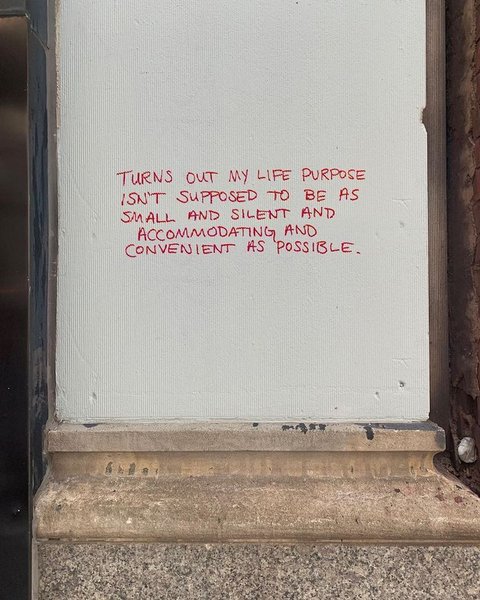 TURNS OUT MY LIFE PURPOSE
ISN'T SUPPOSED TO BE AS
SMALL AND SILENT AND
ACCOMMODATING AND
CONVENIENT AS POSSIBLE.